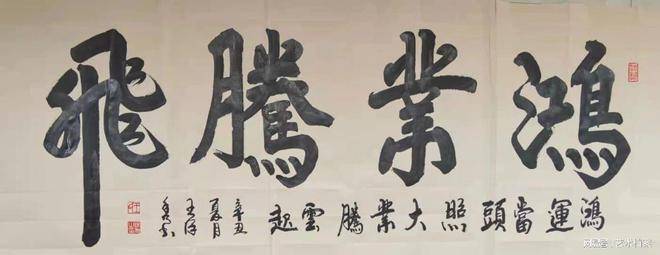 鴻業騰飛
鴻運當頭照大業騰雲起
辛丑
夏月
王